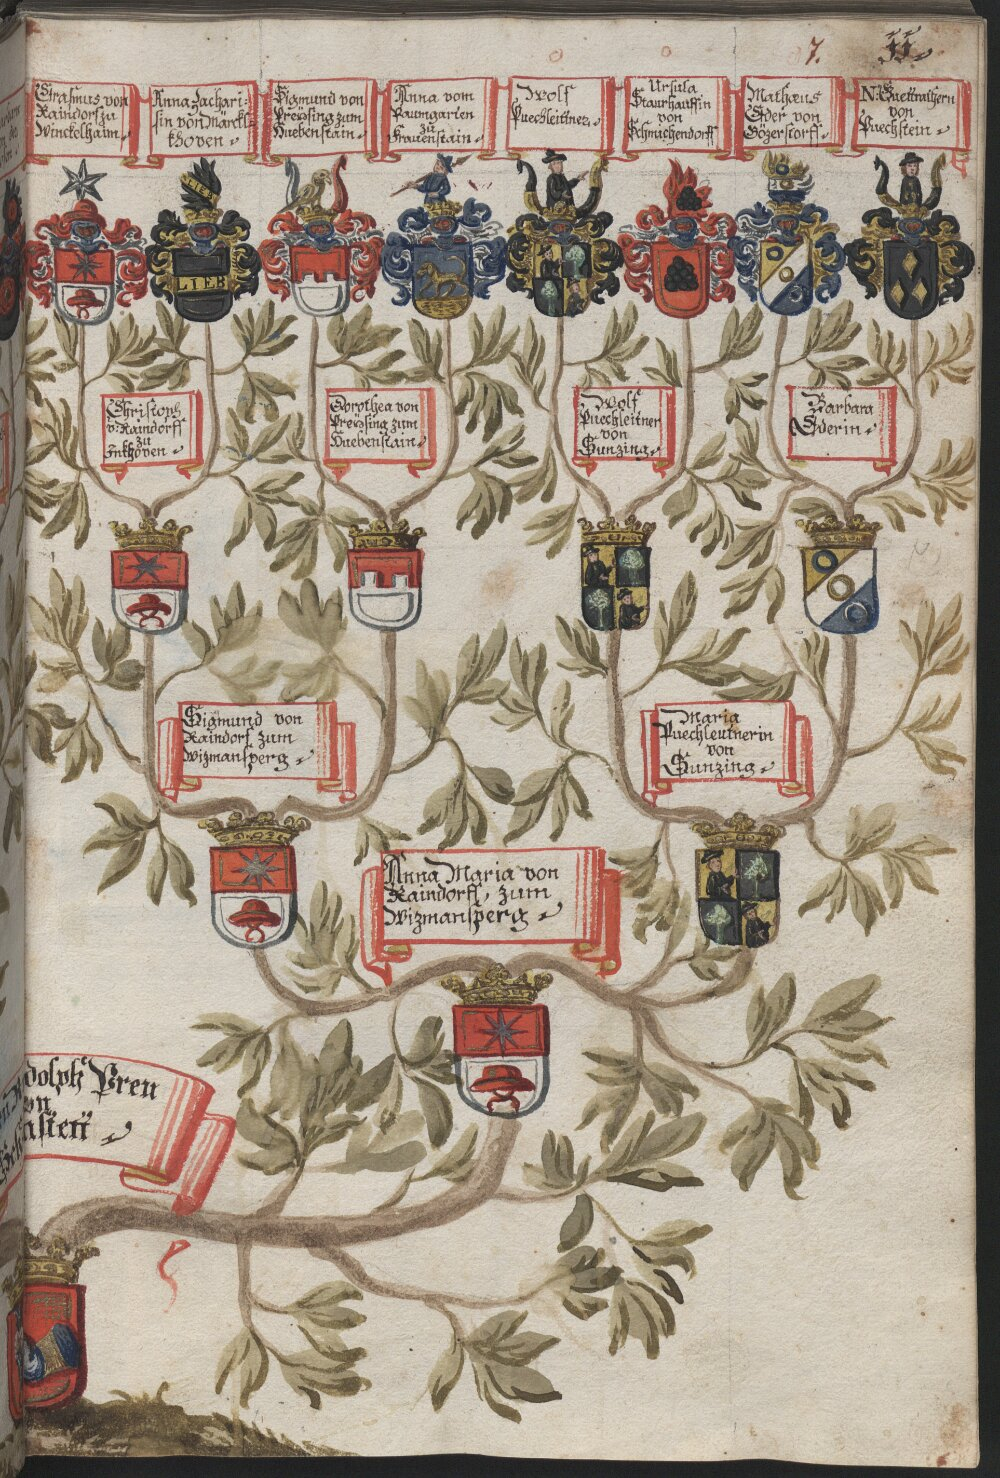 7.
11.
Erasmus von
Raindorf zu
Winckelhaim
Anna Zachari=
sin von Marckl=
khoven
Sigmund von
Preysing zum
Huebenstain
Anna vom
Paumgarten
zu
Frauenstain
Wolf
Puechleittner
Ursula
Staurhauffin
von
Schmiehendorff
Mathæus
Eder von
Gözerstorff
N: Guettrathern
von
Puechstein
LIEB
LIEB
Christoph
v: Raindorff
zu
Inkhoven
Dorothea von
Preysing zum
Huebenstain
Wolf
Puechleitner
von
Sunzing
Barbara
Ederin
Sigmund von
Raindorf zum
Wizmansperg
Maria
Puechleuttnerin
von
Sunzing
Anna Maria von
Raindorff, zum
Wizmansperg
dolph Preu